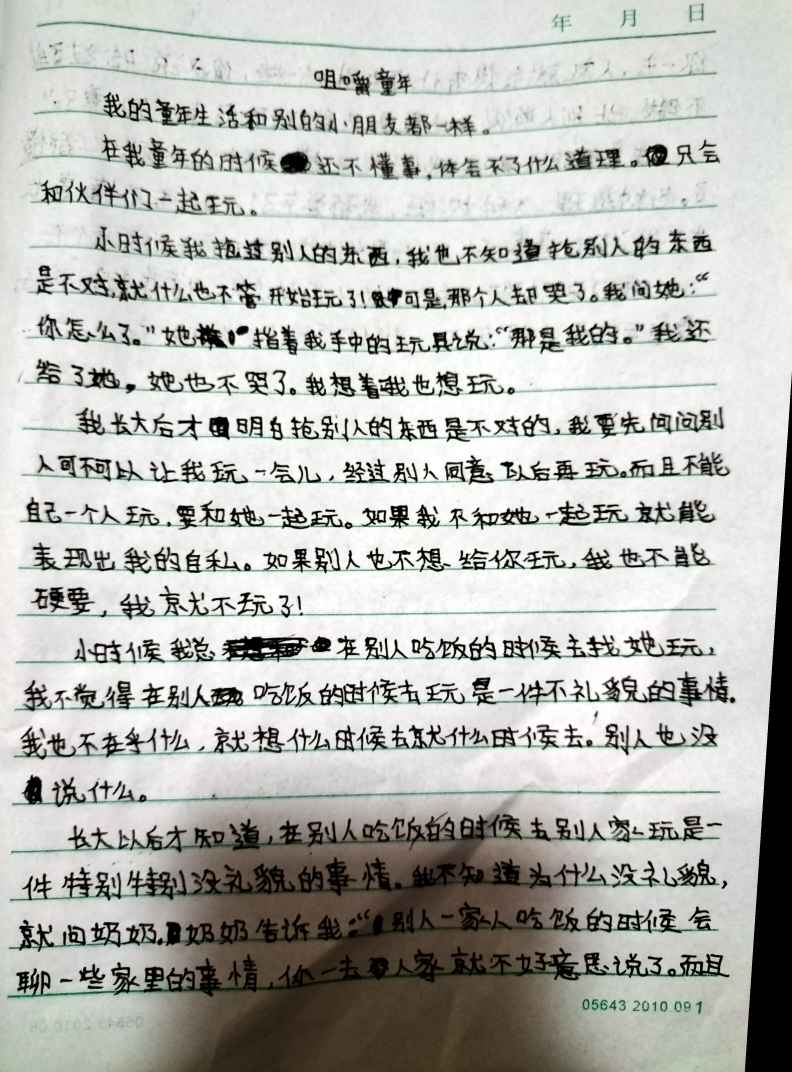 年 月 日
咀嚼童年
我的童年生活和别的小朋友都一样。
在我童年的时候还不懂事,体会不了什么道理。只会
和伙伴们一起玩。
小时候我抢过别人的东西,我也不知道抢别人的东西
是不对,就什么也不管开始玩了!可是,那个人却哭了。我问她:“
你怎么了。”她指着我手中的玩具说:“那是我的。”我还
给了她,她也不哭了。我想着哦我也想玩。
我长大后才明白抢别人的东西是不对的,我要先问问别
人可不可以让我玩一会儿,经过别人同意以后再玩。而且不能
自己一个人玩,要和她一起玩。如果我不和她一起玩就能
表现出我的自私。如果别人也不想给你玩,我也不能
硬要,我就不玩了!
小时候我总在别人吃饭的时候去找她玩,
我不觉得在别人吃饭的时候去玩是一件不礼貌的事情。
我也不在乎什么,就想什么时候去就什么时候去。别人也没
说什么。
长大以后才知道,在别人吃饭的时候去别人家玩是一
件特别特别没礼貌的事情。我不知道为什么没礼貌,
就问奶奶。奶奶告诉我:“别人一家人吃饭的时候会
聊一些家里的事情,你一去人家就不好意思说了。而且
05643 2010.09 1